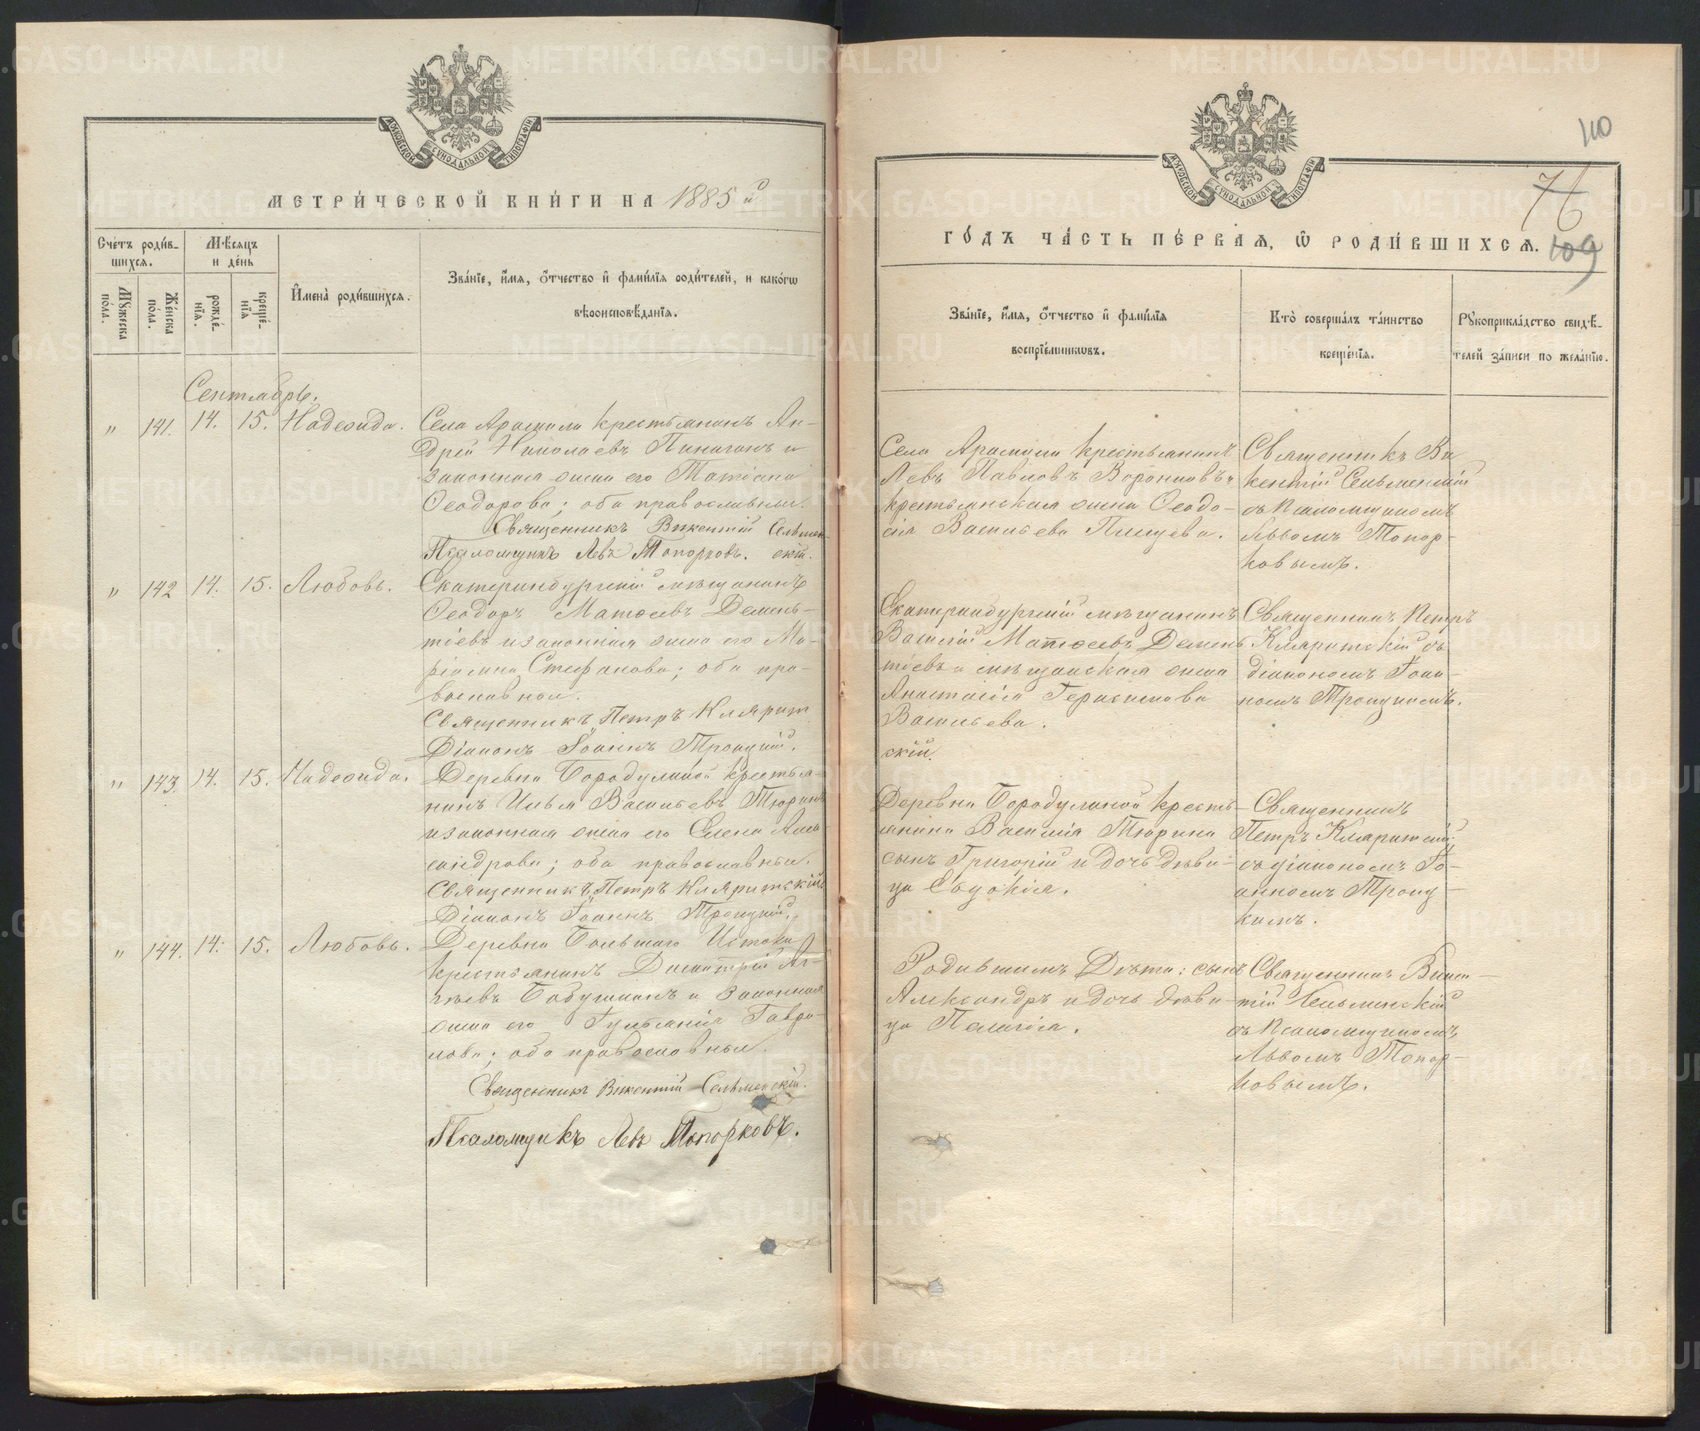 МЕТРИ́ЧЕСКОЙ КНИ́ГИ НА 1885 й
Сче́тъ роди́в-
шихся.
Мѣсяцъ
и де́нь
Мꙋжеска
по́ла.
Же́нска
по́ла.
рожде́-
нїя.
креще́-
нїя
И҆мена̀ роди́вшихся.
Зва́нїе, и҆́мя, ѻ҆́тчество и҆ фами́лїя роди́телей, и како́гѡ
вѣроисповѣ́данїя.
Сентябрь.
" 141. 14. 15. Надежда.
Села Арамили крестьянинъ Ан-
дрей Николаевъ и
законная жена его
Ѳеодорова; оба православные.
Священникъ Викентій Сельмен-
Псаломщикъ Левъ Топорковъ. скій.
" 142 14. 15. Любовь.
Екатеринбургскій мѣщанинъ
Ѳеодоръ Матѳеевъ Демень-
тіевъ и законная жена его Ма-
ріамна Стефанова; оба пра-
вославные.
Священникъ Петръ Клярит
Діаконъ Іоаннъ Троицкій.
" 143. 14. 15. Надежда.
Деревни Бородулиной крестья-
нинъ Илья Васильевъ Тюринъ
и законная жена его Елена Алек-
сандрова; оба православные.
Священникъ Петръ Кляритскій
Діаконъ Іоаннъ Троицкій.
" 144. 14. 15. Любовь.
Деревни Большаго Истока
крестьянинъ Димитрій Ан-
Бабушкинъ и законная
жена его Гаври-
лова; оба православные.
Священникъ Викентій Сельменскій.
Псаломщикъ Левъ Топорковъ.
110
76
109
ГО́ДЪ ЧА́СТЬ ПЕ́РВАЯ, Ѡ҆ РОДИ́ВШИХСЯ.
Зва́нїе, и҆́мя, ѻ҆́тчество и҆ фами́лїя
воспрїе́мникѡвъ.
Кто̀ соверша́лъ та́инство
креще́нїя.
Рꙋкоприкла́дство свидѣ́-
телей за́писи по жела́нїю.
Села Арамили крестьянинъ
Левъ Павловъ Воронцовъ и
крестьянская жена Ѳеодо-
сія Васильева
Священникъ Ви
кентій Сельменскій
съ псаломщикомъ
Львомъ Топор-
ковымъ.
Екатеринбургскій мѣщанинъ
Василій Матѳеевъ Демень
тіевъ и мѣщанская жена
Анастасія Герасимова
Васильева.
скій.
Священникъ Петръ
Кляритскій съ
діакономъ Іоан-
номъ Троицкимъ.
Деревни Бородулиной кресть-
янина Василія Тюрина
сынъ Григорій и дочь дѣви-
ца Евдокія.
Священникъ
Петръ Кляритскій
съ діакономъ Іо-
анномъ Троиц-
кимъ.
Родившимъ Дѣти: сынъ
Александръ и дочь дѣви-
ца Пелагія.
Священникъ Викен-
тій Сельменскій
съ псаломщикомъ
Львомъ Топор-
ковымъ.
METRIKI.GASO-URAL.RU